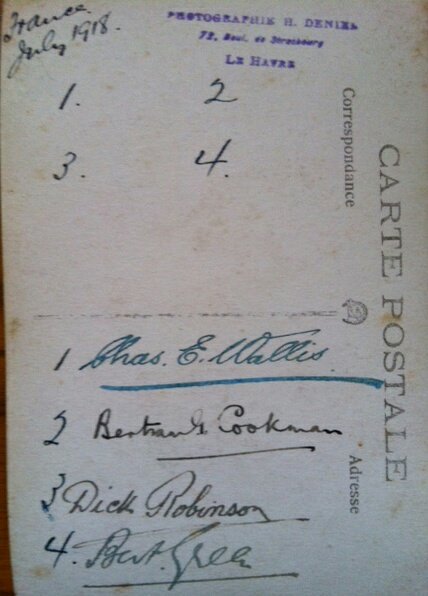 France
July 1918.
PHOTOGRAPHIE H. DENIEL
72, Boul. de Strasbourg
LE HAVRE
1. 2
3. 4.
Correspondance
CARTE POSTALE
Adresse
1 Chas. E. Wallis
2 Bertrand Cookman
3 Dick Robinson
4. Bert. Green